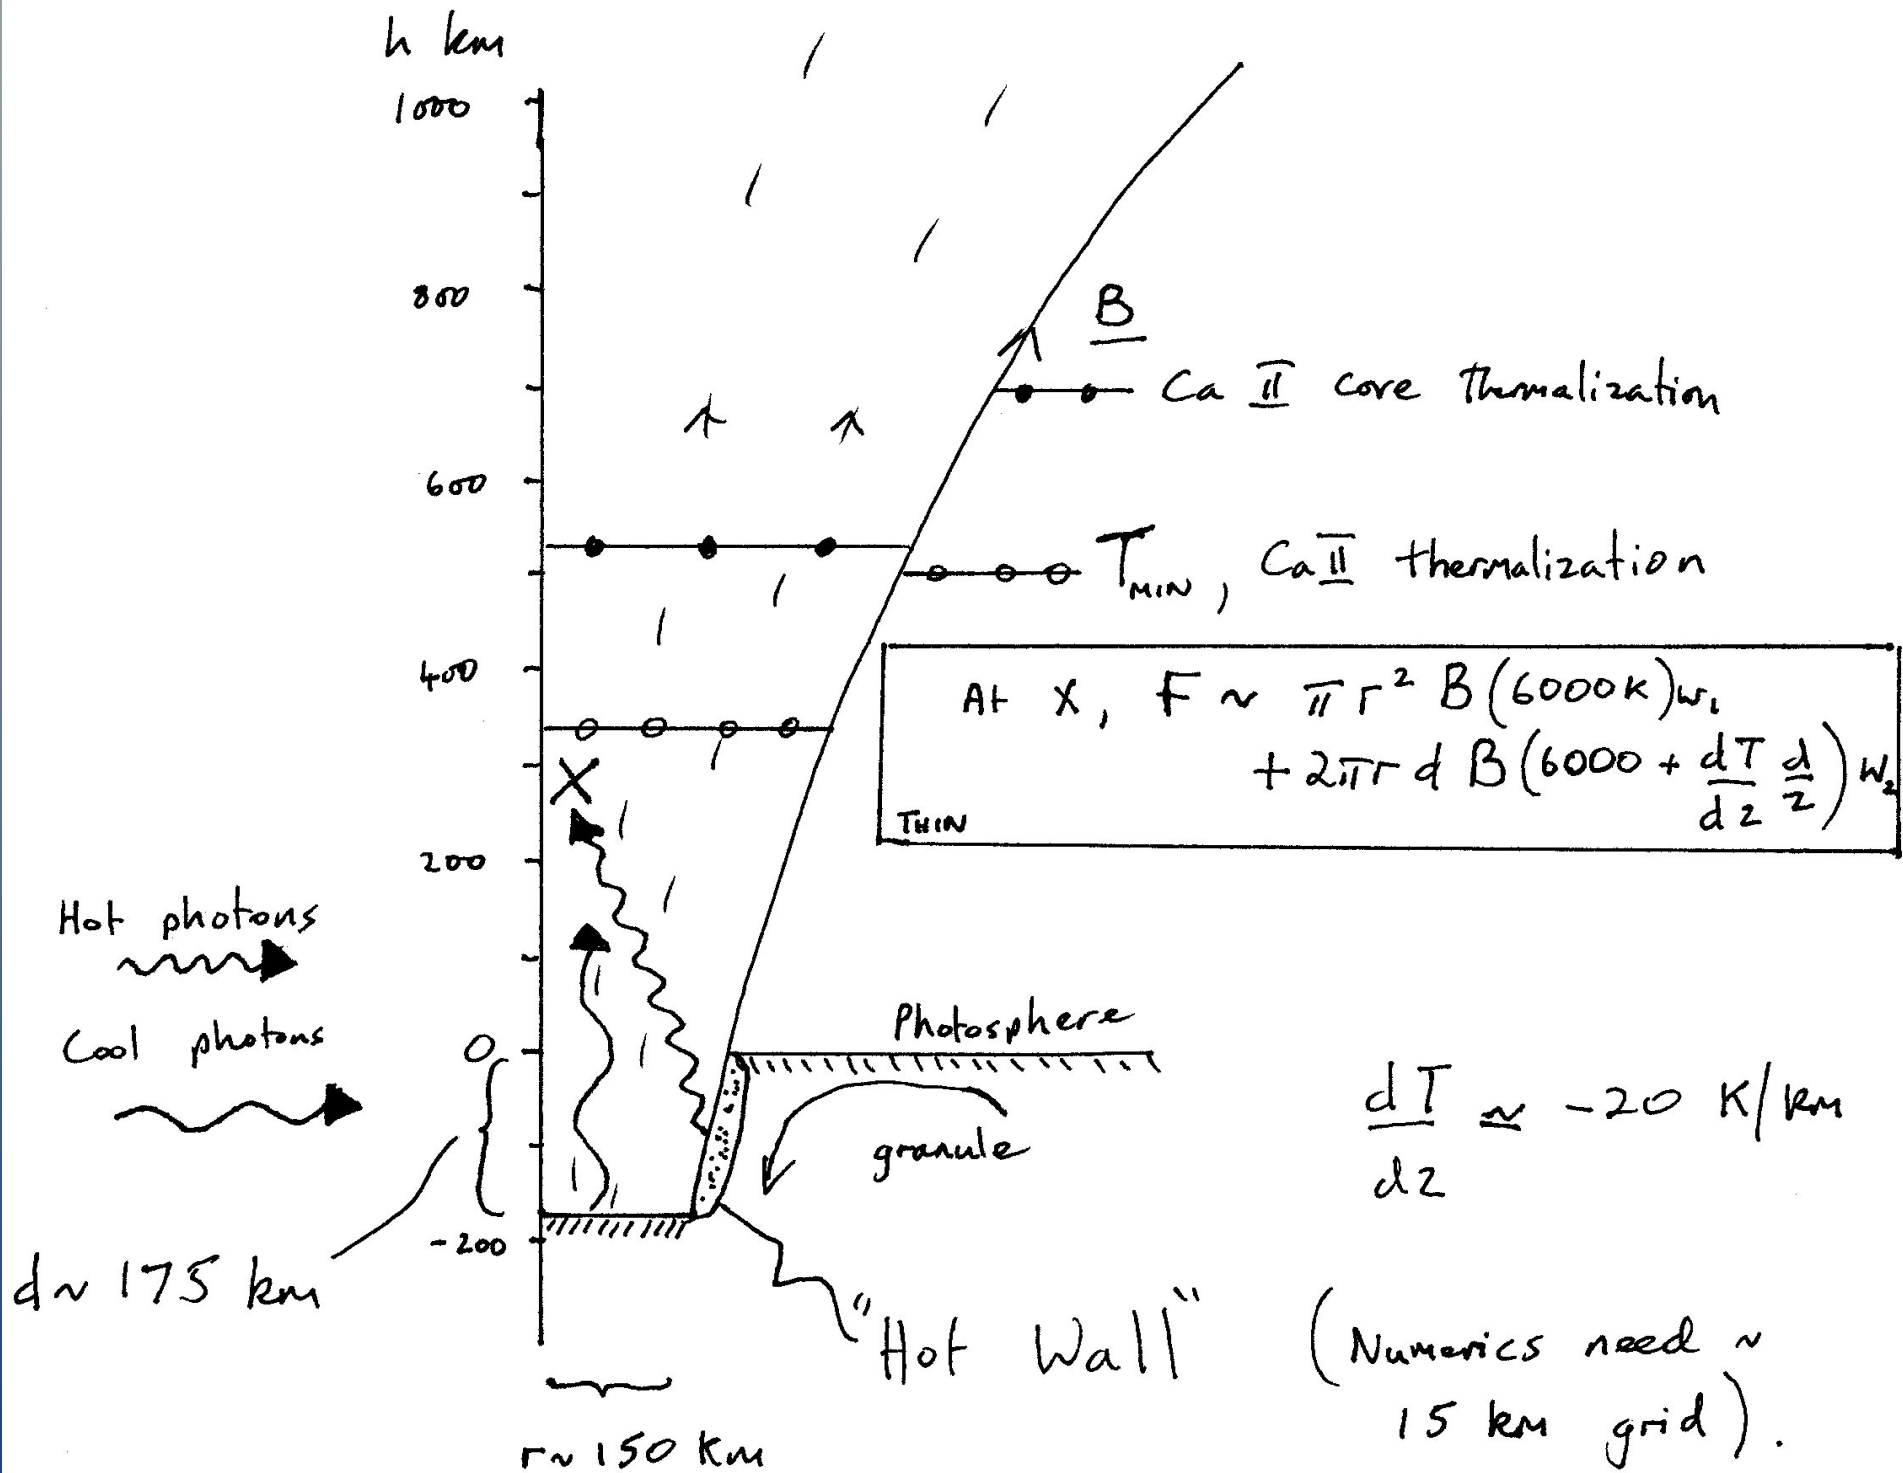 h km
1000
800
B
Ca II core thermalization
600
TMIN, Ca II thermalization
400
At X, F ~ πr² B(6000K)w₁
+ 2πr d B(6000 + dT/dz d/2) w₂
THIN
X
200
Hot photons
Cool photons
0
Photosphere
granule
dT/dz ≃ -20 K/km
-200
d ~ 175 km
"Hot Wall"
(Numerics need ~
15 km grid).
r ~ 150 km